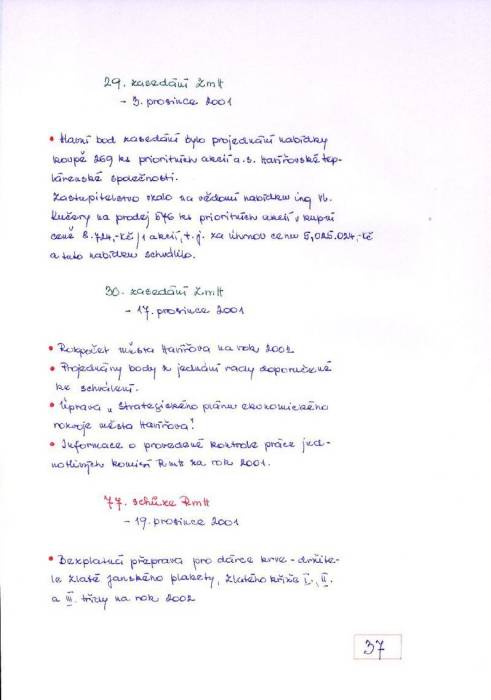 29. zasedání ZmH
- 3. prosince 2001
• Hlavní bod zasedání bylo projednání nabídky
koupě 269 ks prioritních akcií a.s. Havířovské tep-
lárenské společnosti.
Zastupitelstvo vzalo na vědomí nabídku ing. Vl.
Kučery na prodej 576 ks prioritních akcií v kupní
ceně 8.724,-Kč/1 akcii, t.j. za úhrnnou cenu 5,025.024,-Kč
a tuto nabídku schválilo.
30. zasedání ZmH
- 17. prosince 2001
• Rozpočet města Havířova na rok 2002
• Projednány body z jednání rady doporučené
ke schválení.
• Úprava "Strategického plánu ekonomického
rozvoje města Havířova"
• Informace o provedené kontrole práce jed-
notlivých komisí RmH za rok 2001.
77. schůze RmH
- 19. prosince 2001
• Bezplatná přeprava pro dárce krve - držite-
le zlaté Janského plakety, Zlatého kříže I., II.
a III. třídy na rok 2002
37